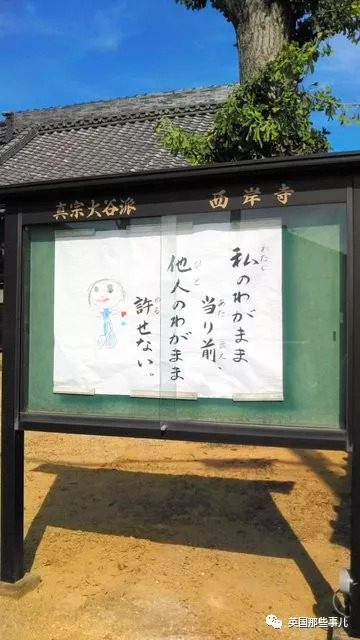 真宗大谷派 西岸寺
私のわがまま
当り前、
他人のわがまま
許せない。
英国那些事儿